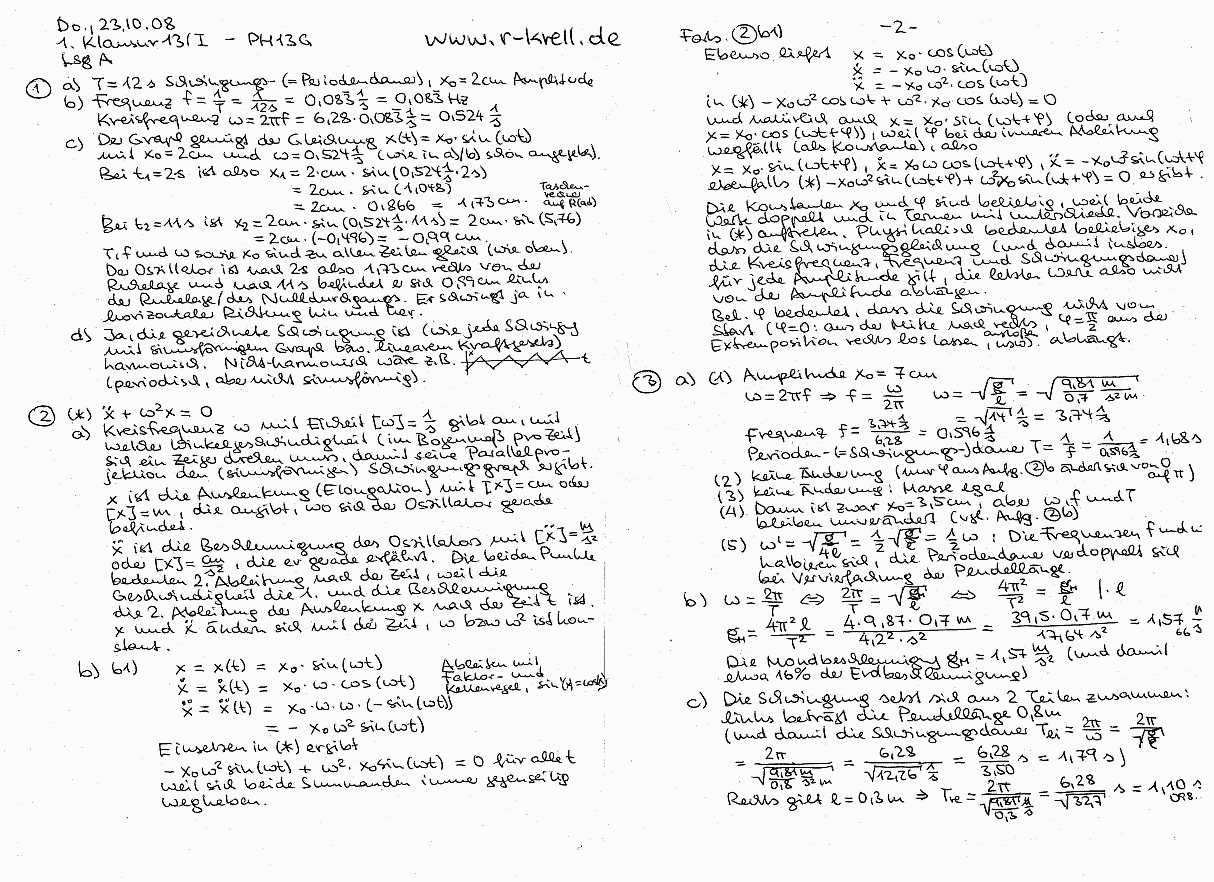 Do., 23.10.08
1. Klausur 13/I - PH13G www.r-krell.de
Lsg A
① a) T = 12 s Schwingungs- (= Periodendauer), x₀ = 2cm Amplitude
b) Frequenz f = 1/T = 1/12s = 0,083 1/s = 0,083 Hz
Kreisfrequenz ω = 2πf = 6,28 · 0,083 1/s = 0,524 1/s
c) Der Graph genügt der Gleichung x(t) = x₀ · sin(ωt)
mit x₀ = 2cm und ω = 0,524 1/s (wie in a)/b) schon angegeben).
Bei t₁ = 2s ist also x₁ = 2·cm · sin(0,524 1/s · 2s)
= 2cm · sin(1,048)
= 2cm · 0,866 = 1,73 cm. Taschen-
rechner
auf R(ad)
Bei t₂ = 11s ist x₂ = 2cm · sin(0,524 1/s · 11s) = 2cm · sin(5,76)
= 2cm · (-0,496) = -0,99 cm.
T, f und ω sowie x₀ sind zu allen Zeiten gleich (wie oben).
Der Oszillator ist nach 2s also 1,73cm rechts von der
Ruhelage und nach 11s befindet er sich 0,99cm links
der Ruhelage/des Nulldurchgangs. Er schwingt ja in
horizontaler Richtung hin und her.
d) Ja, die gezeichnete Schwingung ist (wie jede Schwingg
mit sinusförmigem Graph bzw. linearem Kraftgesetz)
harmonisch. Nicht-harmonisch wäre z.B. t
(periodisch, aber nicht sinusförmig).
② (*) ẍ + ω²x = 0
a) Kreisfrequenz ω mit Einheit [ω] = 1/s gibt an, mit
welcher Winkelgeschwindigkeit (im Bogenmaß pro Zeit)
sich ein Zeiger drehen muss, damit seine Parallelpro-
jektion den (sinusförmigen) Schwingungsgraph ergibt.
x ist die Auslenkung (Elongation) mit [x] = cm oder
[x] = m, die angibt, wo sich der Oszillator gerade
befindet.
ẍ ist die Beschleunigung des Oszillators mit [ẍ] = m/s²
oder [ẍ] = cm/s², die er gerade erfährt. Die beiden Punkte
bedeuten 2. Ableitung nach der Zeit, weil die
Geschwindigkeit die 1. und die Beschleunigung
die 2. Ableitung der Auslenkung x nach der Zeit t ist.
x und ẍ ändern sich mit der Zeit, ω bzw ω² ist kon-
stant.
b) b1) x = x(t) = x₀ · sin(ωt) Ableiten mit
ẋ = ẋ(t) = x₀ · ω · cos(ωt) Faktor- und
Kettenregel,
ẍ = ẍ(t) = x₀ · ω · ω · (-sin(ωt))
= - x₀ω² · sin(ωt)
Einsetzen in (*) ergibt
- x₀ω² sin(ωt) + ω² · x₀ sin(ωt) = 0 für alle t
weil sich beide Summanden immer gegenseitig
wegheben.
-2-
Forts. ② b1)
Ebenso liefert x = x₀ · cos(ωt)
ẋ = -x₀ω · sin(ωt)
ẍ = -x₀ω² · cos(ωt)
in (*) -x₀ω² cos ωt + ω² · x₀ · cos(ωt) = 0
und natürlich auch x = x₀ · sin(ωt+φ) (oder auch
x = x₀ · cos(ωt+φ)), weil φ bei der inneren Ableitung
wegfällt (als Konstante), also
x = x₀ · sin(ωt+φ), ẋ = x₀ω cos(ωt+φ), ẍ = -x₀ω² sin(ωt+φ
ebenfalls (*) -x₀ω² sin(ωt+φ) + ω²x₀ sin(ωt+φ) = 0 ergibt.
Die Konstanten x₀ und φ sind beliebig, weil beide
Werte doppelt und in Termen mit unterschiedl. Vorzeichen
in (*) auftreten. Physikalisch bedeutet beliebiges x₀,
dass die Schwingungsgleichung (und damit insbes.
die Kreisfrequenz, Frequenz und Schwingungsdauer)
für jede Amplitude gilt, die letzten Werte also nicht
von der Amplitude abhängen.
Bel. φ bedeutet, dass die Schwingung nicht vom
Start (φ=0: aus der Mitte nach rechts, φ = π/2 aus der
Extremposition rechts los lassen, usw.) abhängt.
③ a) (1) Amplitude x₀ = 7cm
ω = 2πf ⇒ f = ω/2π ω = √(g/l) = √(9,81 m / 0,7 s²m)
= √14 1/s = 3,74 1/s
Frequenz f = 3,74 1/s / 6,28 = 0,596 1/s
Perioden- (= Schwingungs-) dauer T = 1/f = 1/0,596 1/s = 1,68 s
(2) keine Änderung (nur φ aus Aufg. ② b ändert sich von 0
auf π)
(3) keine Änderung: Masse egal
(4) Dann ist zwar x₀ = 3,5cm, aber ω, f und T
bleiben unverändert (vgl. Aufg. ② b)
(5) ω' = √(g/4l) = 1/2 √(g/l) = 1/2 ω: Die Frequenzen f und ω
halbieren sich, die Periodendauer verdoppelt sich
bei Vervierfachung der Pendellänge.
b) ω = 2π/T ⇔ 2π/T = √(g/l) ⇔ 4π²/T² = g_M/l | · l
g_M = 4π² l / T² = 4 · 9,87 · 0,7 m / 4,2² · s² = 39,5 · 0,7 m / 17,64 s² = 1,57 m/s
66
Die Mondbeschleunigg g_M = 1,57 m/s² (und damit
etwa 16% der Erdbeschleunigung)
c) Die Schwingung setzt sich aus 2 Teilen zusammen:
links beträgt die Pendellänge 0,8m
(und damit die Schwingungsdauer T_li = 2π/ω = 2π/√(g/l)
= 2π/√(9,81 m / 0,8 s² m) = 6,28/√12,26 1/s = 6,28/3,50 s = 1,79 s)
Rechts gilt l = 0,3 m ⇒ T_re = 2π/√(9,81 / 0,3) 1/s = 6,28/√32,7 s = 1,10 s
098..